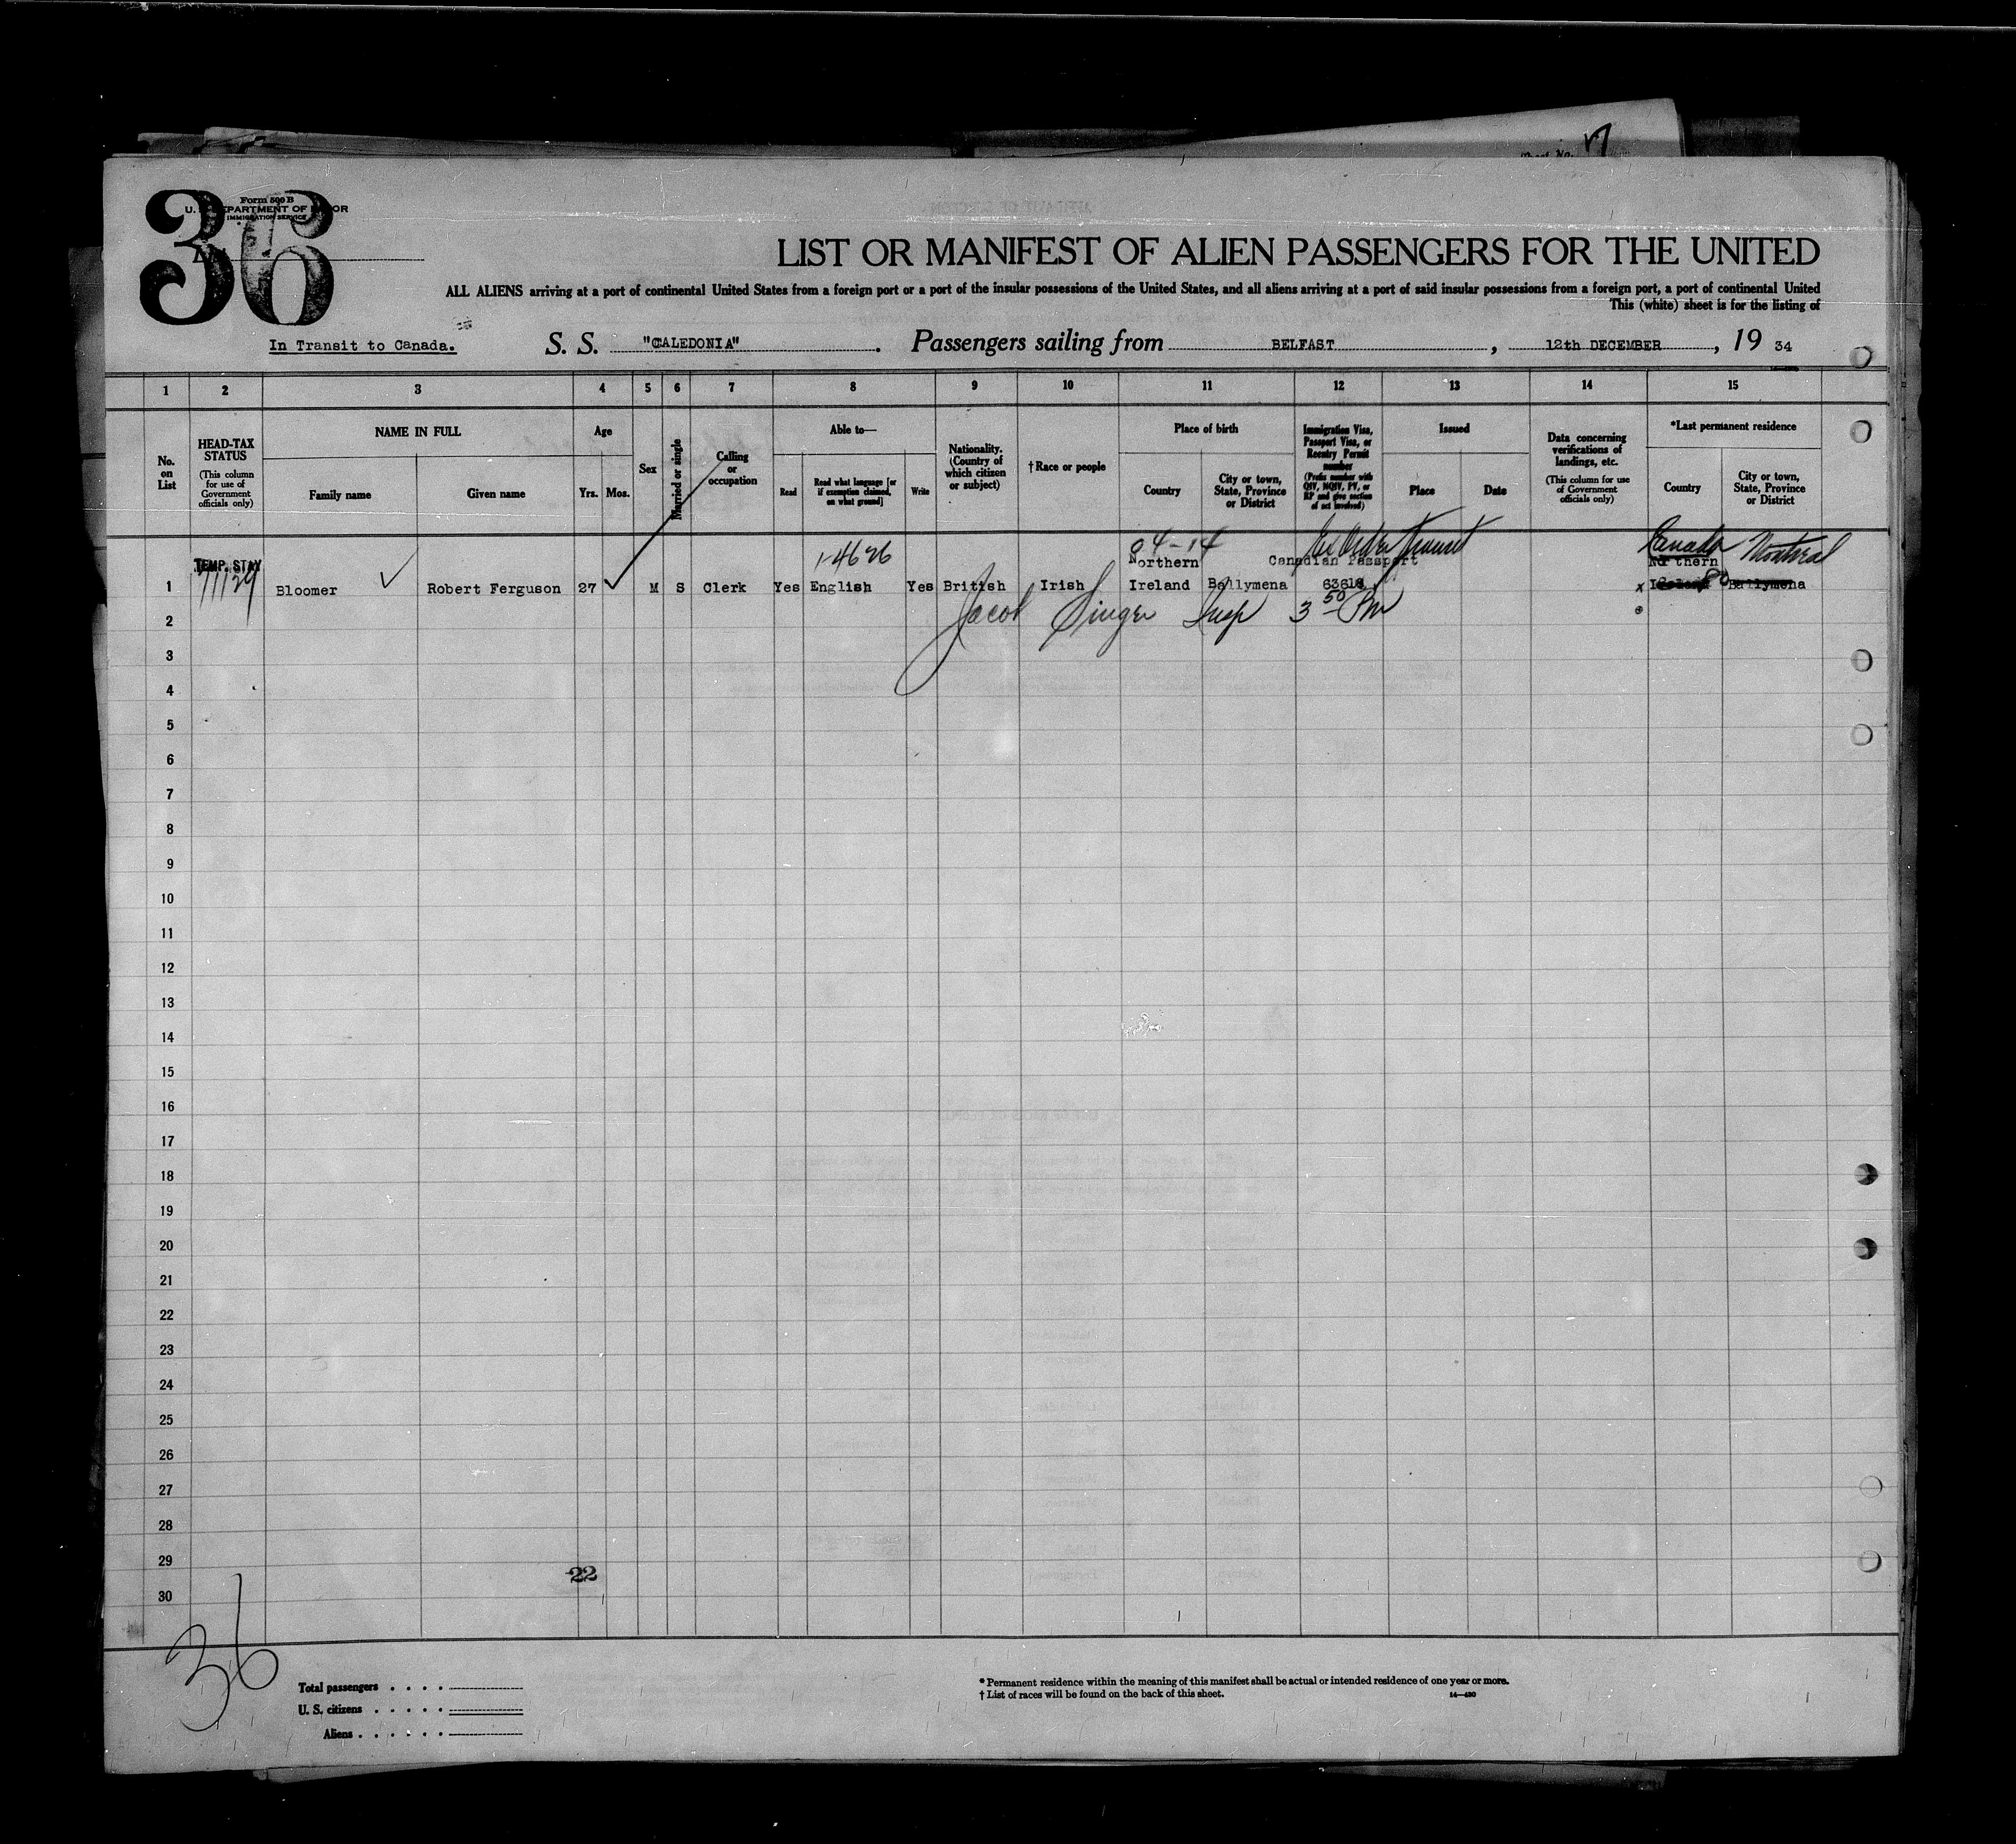 36
Form 500 B
U. S. DEPARTMENT OF LABOR
IMMIGRATION SERVICE
LIST OR MANIFEST OF ALIEN PASSENGERS FOR THE UNITED
ALL ALIENS arriving at a port of continental United States from a foreign port or a port of the insular possessions of the United States, and all aliens arriving at a port of said insular possessions from a foreign port, a port of continental United
This (white) sheet is for the listing of
In Transit to Canada. S. S. "CALEDONIA". Passengers sailing from BELFAST, 12th DECEMBER, 19 34
1 2 3 4 5 6 7 8 9 10 11 12 13 14 15
No. on List
HEAD-TAX STATUS
(This column for use of Government officials only)
NAME IN FULL
Family name
Given name
Age
Yrs. Mos.
Sex
Married or single
Calling or occupation
Able to—
Read
Read what language [or if exemption claimed, on what ground]
Write
Nationality. (Country of which citizen or subject)
† Race or people
Place of birth
Country
City or town, State, Province or District
Immigration Visa, Passport Visa, or Reentry Permit number
(Prefix number with QIV, NQIV, PV, or RP and give section of act involved)
Issued
Place
Date
Data concerning verifications of landings, etc.
(This column for use of Government officials only)
*Last permanent residence
Country
City or town, State, Province or District
TEMP. STAY 1-4626 Northern Canadian Passport Canada Montreal
Northern
1 Bloomer Robert Ferguson 27 M S Clerk Yes English Yes British Irish Ireland Ballymena 63618 x Ireland Ballymena
2 Jacob Singer Insp 3 50 PM
3
4
5
6
7
8
9
10
11
12
13
14
15
16
17
18
19
20
21
22
23
24
25
26
27
28
29
22
30
36
Total passengers
U. S. citizens
Aliens
* Permanent residence within the meaning of this manifest shall be actual or intended residence of one year or more.
† List of races will be found on the back of this sheet. 14—430